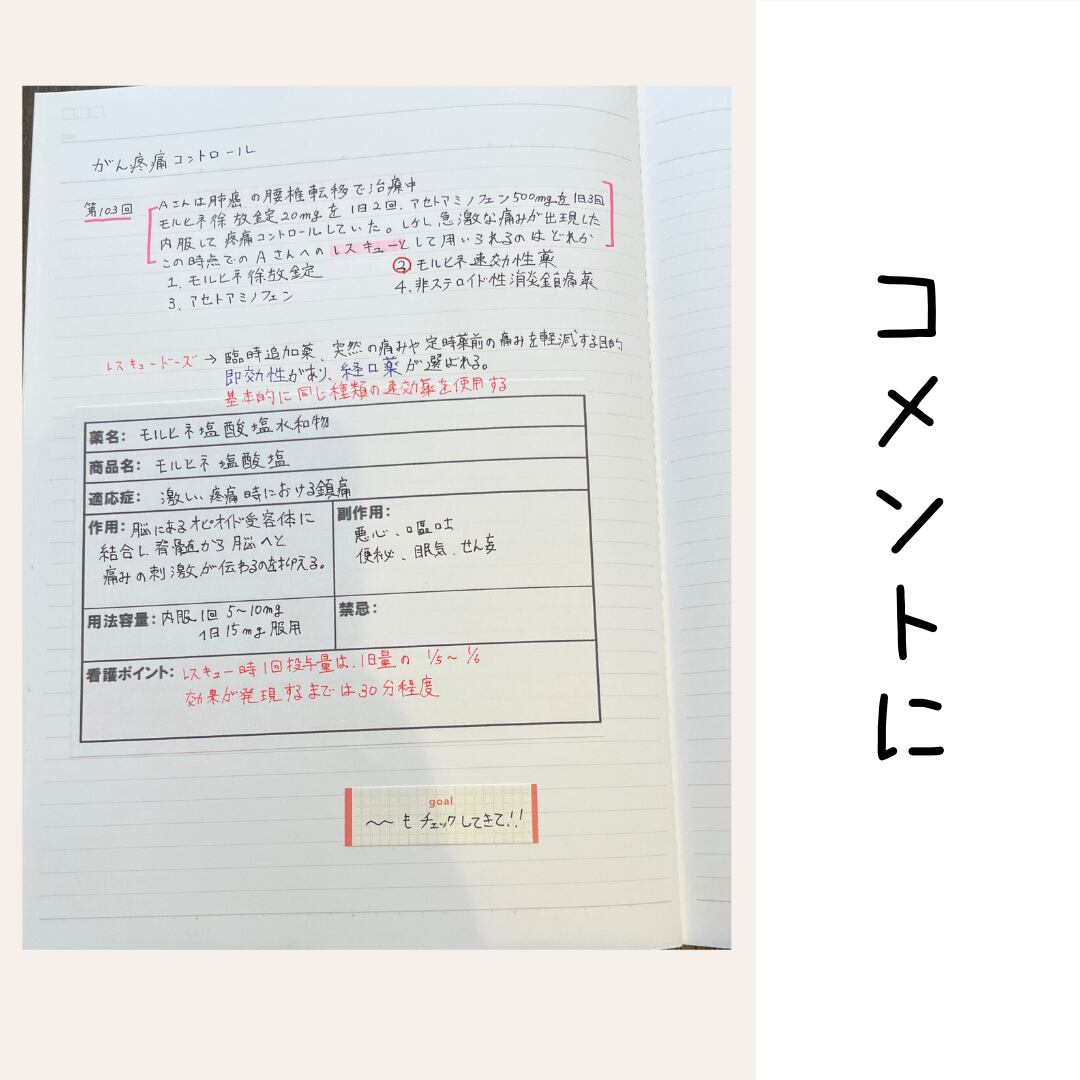 がん疼痛コントロール
第103回
Aさんは肺癌の腰椎転移で治療中
モルヒネ徐放錠20mgを1日2回、アセトアミノフェン500mgを1日3回
内服して疼痛コントロールしていた。しかし急激な痛みが出現した
この時点でのAさんへのレスキューとして用いられるのはどれか
1. モルヒネ徐放錠
② モルヒネ速効性薬
3. アセトアミノフェン
4. 非ステロイド性消炎鎮痛薬
レスキュードーズ → 臨時追加薬、突然の痛みや定時薬前の痛みを軽減する目的
即効性があり、経口薬が選ばれる。
基本的に同じ種類の速効薬を使用する
薬名: モルヒネ塩酸塩水和物
商品名: モルヒネ塩酸塩
適応症: 激しい疼痛時における鎮痛
作用: 脳にあるオピオイド受容体に
結合し、脊髄から脳へと
痛みの刺激が伝わるのを抑える。
副作用:
悪心、嘔吐
便秘、眠気、せん妄
用法容量: 内服1回 5〜10mg
1日15mg服用
禁忌:
看護ポイント: レスキュー時1回投与量は、1日量の 1/5〜1/6
効果が発現するまでは30分程度
goal
〜〜もチェックしてきて!!
コメントに